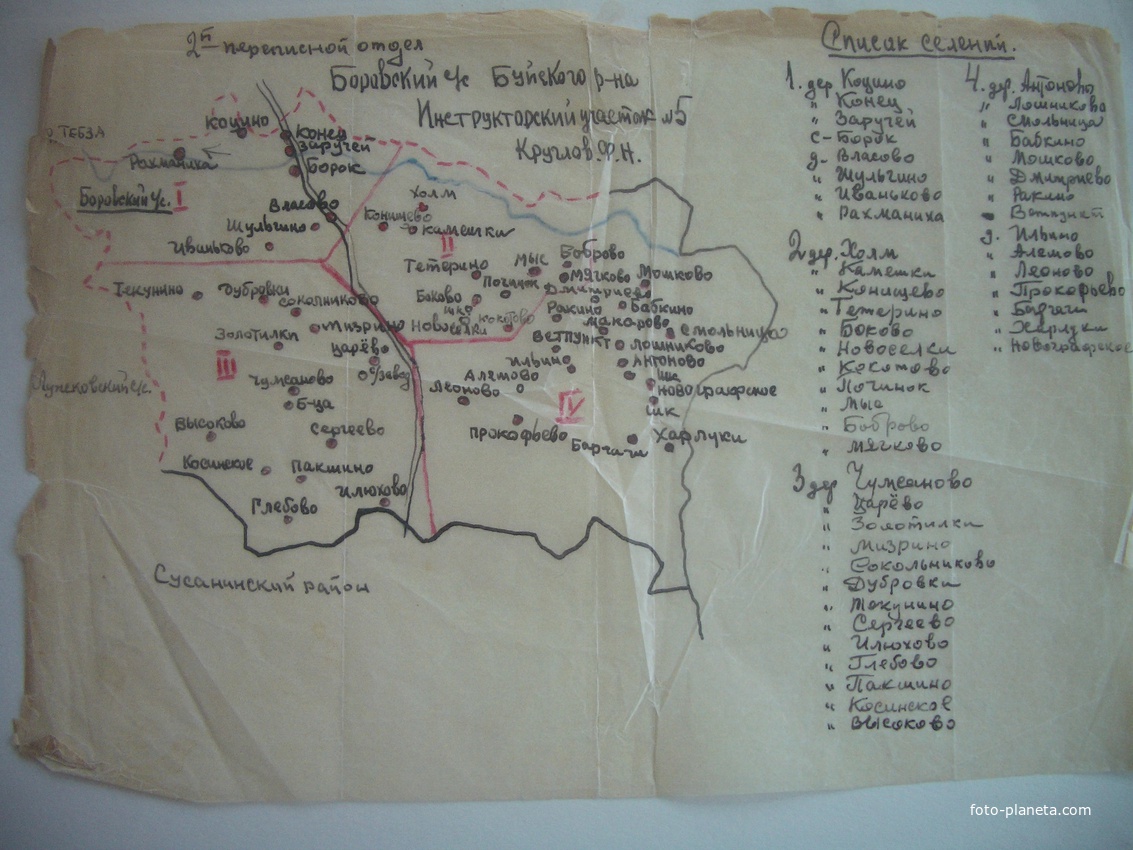 2й переписной отдел
Боровский с/с Буйского р-на
Инструкторский участок №5
Круглов.Ф.Н.
р. ТЕБЗА
Коцино
Конец
Заручей
Рахманиха
Борок
Боровский с/с. I
Власово
Шульгино
Ивиньково
Холм
Конищево
Камешки
II
Тетерино
Мыс
Боброво
Мягково
Мошково
Починок
Дмитриево
Боково
шк
Кокотово
Новоселки
Ракино
Бабкино
Макарово
Смольница
Ветпункт
Лошниково
Ильино
Антоново
Алемово
Леоново
шк
Новографское
шк
IV
Прокофьево
Баргачи
Харлуки
Текунино
Дубровки
Сокольниково
Золотилки
Мизрино
Царёво
с/завод
III
Чумсаново
Б-ца
Высоково
Сергеево
Косинское
Пакшино
Илюхово
Глебово
Сусанинский район
Список селений.
1. дер. Коцино
" Конец
" Заручей
с- Борок
д. Власово
" Шульгино
" Иваньково
" Рахманиха
2 дер. Холм
" Камешки
" Конищево
" Тетерино
" Боково
" Новоселки
" Кокотово
" Починок
" Мыс
" Боброво
" Мягково
3 дер Чумсаново
" Царёво
" Золотилки
" Мизрино
" Сокольниково
" Дубровки
" Токунино
" Сергеево
" Илюхово
" Глебово
" Пакшино
" Косинское
" Высоково
4. др. Антоновы
" Лошникова
" Смольница
" Бабкино
" Мошково
" Дмитриево
" Ракино
- Ветпункт
д. Ильино
" Алемово
" Леоново
" Прокофьево
" Баргачи
" Харлуки
" Новографское
foto-planeta.com